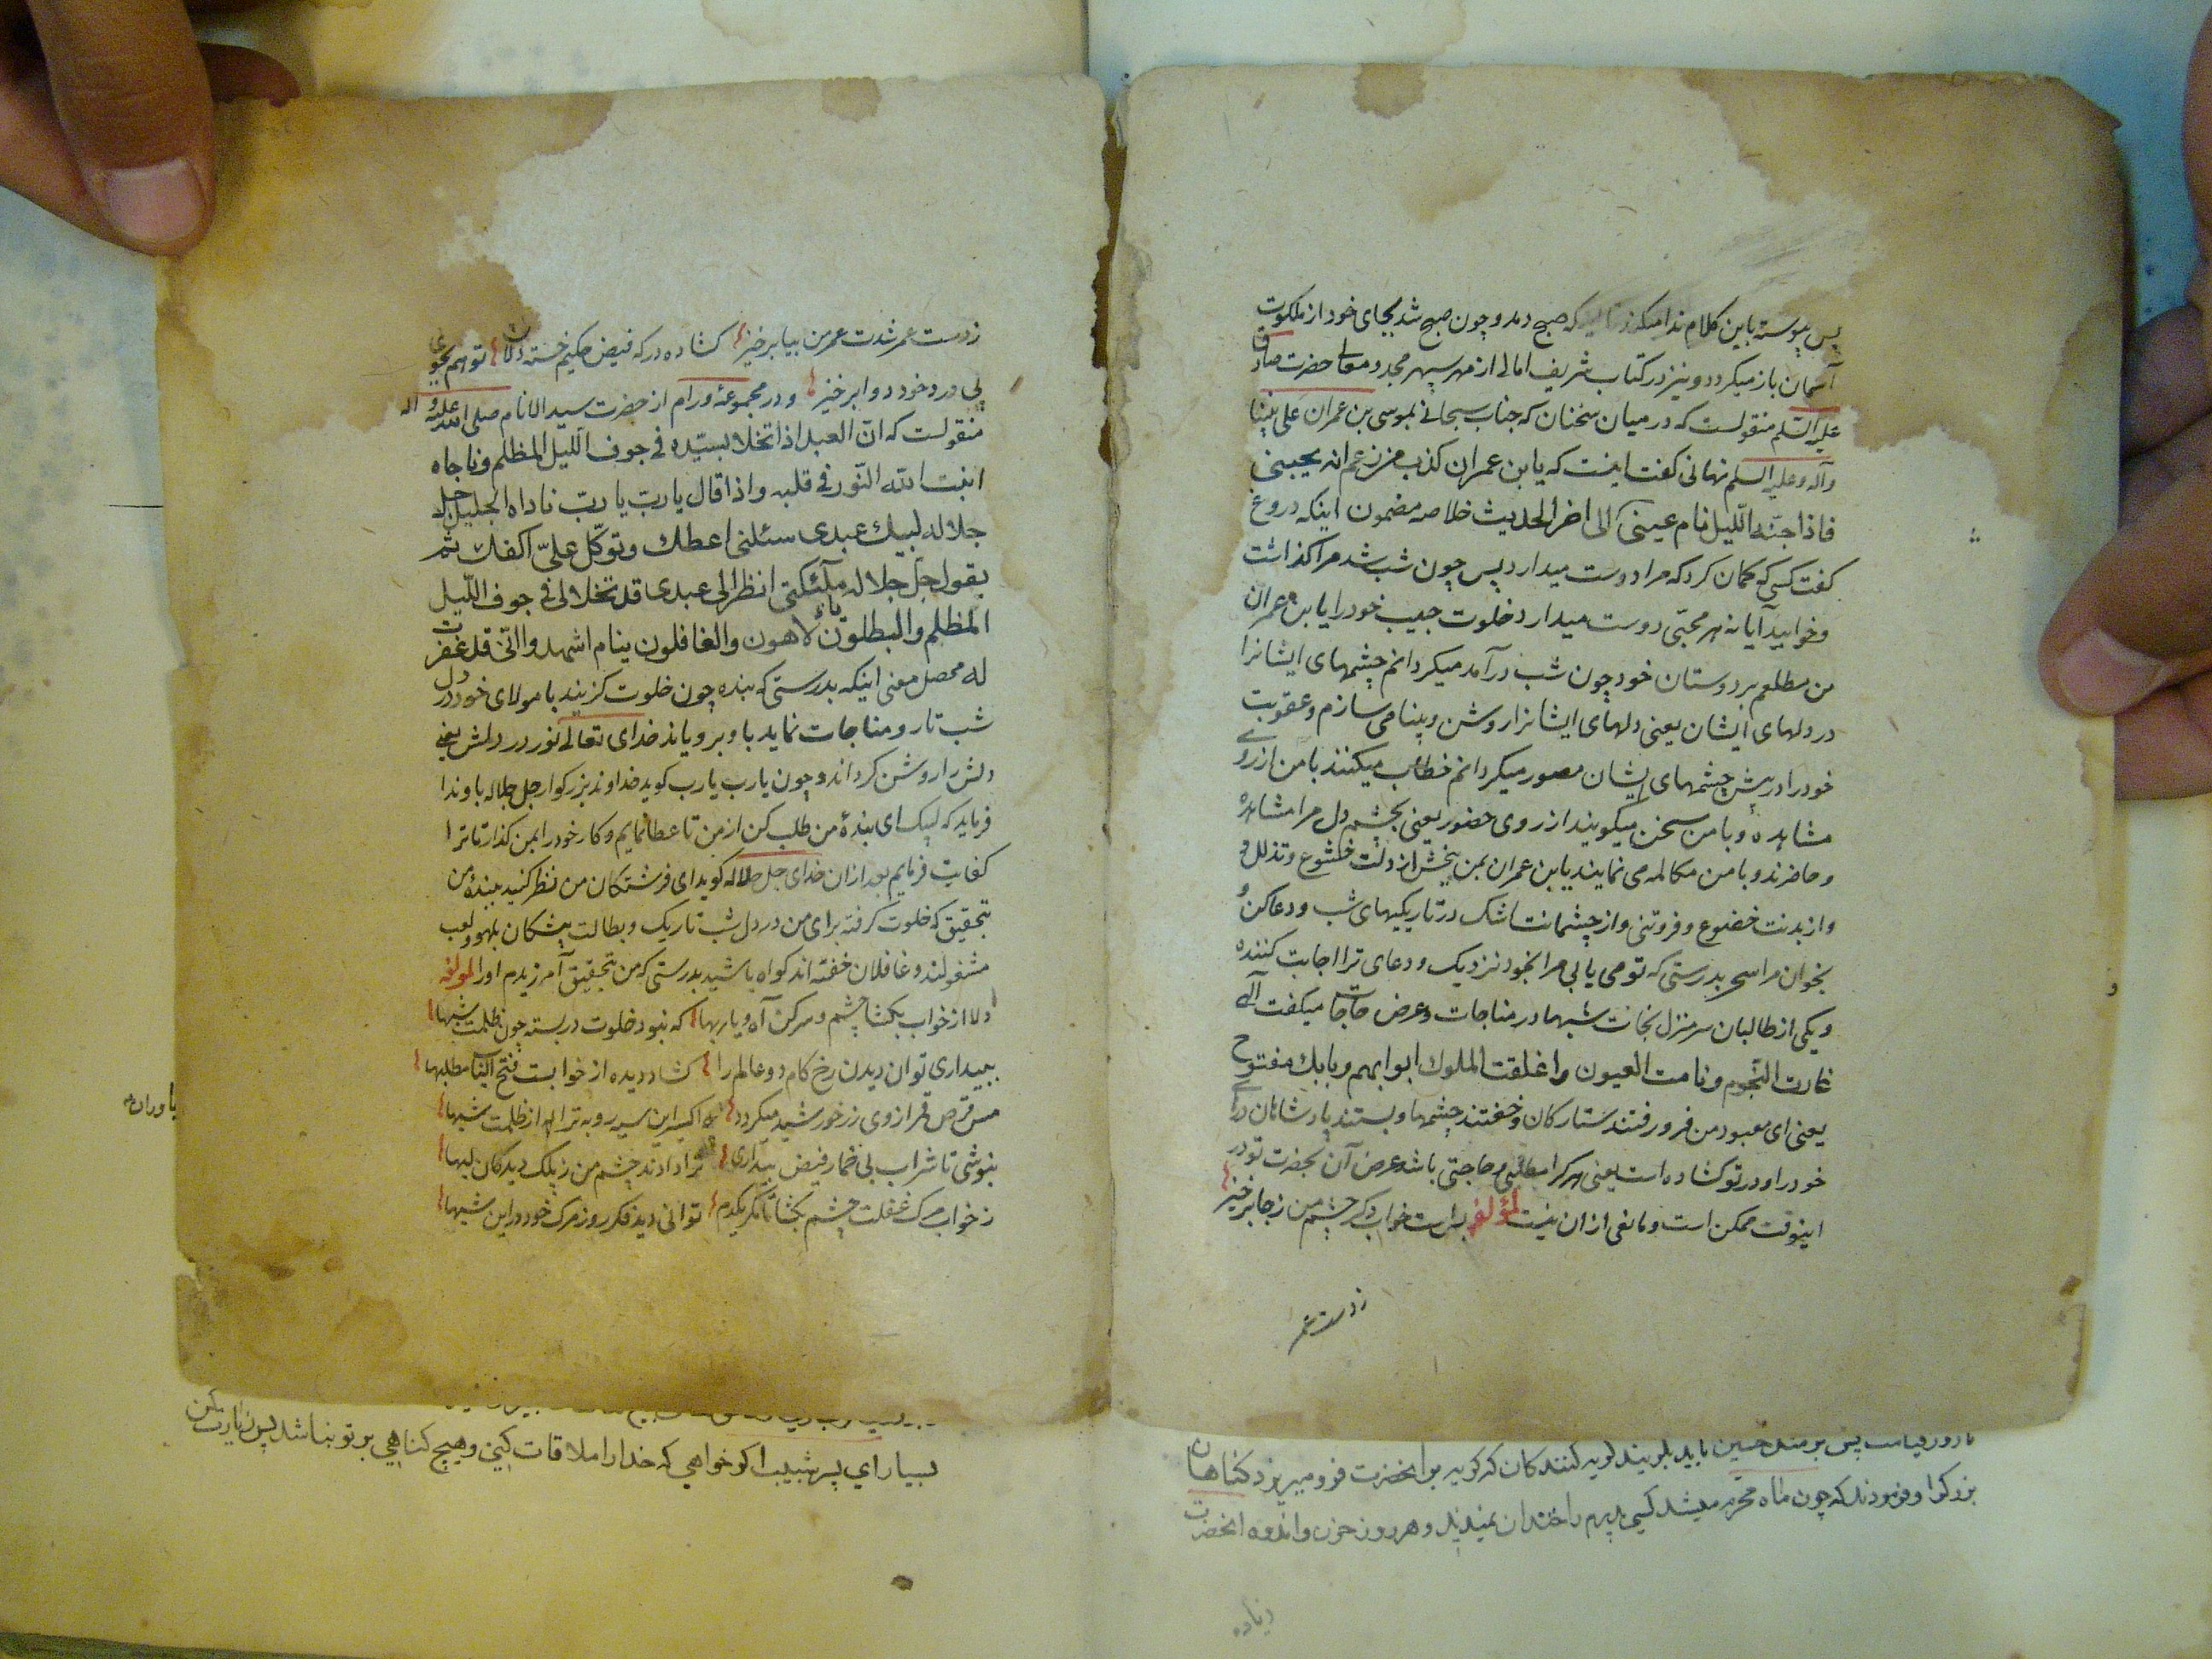 پس پیوسته باین کلام ندا میکند تا اینکه صبح دمد و چون صبح شد بجای خود از ملکوت
آسمان باز میگردد و نیز در کتاب شریف امالی از مهر سپهر مجد و معالی حضرت صادق
علیه السلم منقولست که در میان سخنان که جناب سبحانی بموسی بن عمران علی نبینا
وآله وعلیه السلم نهانی گفت اینست که یابن عمران کذب من زعم انه یحبنی
فاذا جنّه اللّیل نام عینی الی اخر الحدیث خلاصه مضمون اینکه دروغ
گفت کسی که گمان کرد که مرا دوست میدارد پس چون شب شد مرا گذاشت
و خوابید آیا نه هر محبّی دوست میدارد خلوت حبیب خود را یابن عمران
من مطلعم بر دوستان خود چون شب درآمد میگردانم چشمهای ایشانرا
در دلهای ایشان یعنی دلهای ایشانرا روشن و بینا می سازم و عقوبت
خود را در پیش چشمهای ایشان مصور میگردانم خطاب میکنند با من از روی
مشاهده و با من سخن میگویند از روی حضور یعنی بچشم دل مرا مشاهده
و حاضرند و با من مکالمه می نمایند یابن عمران بمن بخش از دلت خشوع و تذلل و
و از بدنت خضوع و فروتنی و از چشمانت اشک در تاریکیهای شب و دعا کن و
بخوان مرا سحر بدرستی که تو می یابی مرا بخود نزدیک و دعای ترا اجابت کننده
و یکی از طالبان سرمنزل نجات شبها در مناجات و عرض حاجات میگفت آلهی
غارت النّجوم و نامت العیون و اغلقت الملوک ابوابهم و بابک مفتوح
یعنی ای معبود من فرو رفتند ستارگان و خفتند چشمها و بستند پادشاهان درهای
خود را و در تو گشاده است یعنی هر کرا مطلبی و حاجتی باشد عرض آن بحضرت تو در
اینوقت ممکن است و مانعی از آن نیست لمؤلفه بس است خواب دگر چشم من ز جا برخیز
ز دست عمر
ز دست عمر شدت عمر من بیا برخیز گشاده در که فیض حکیم خسته دلان تو هم بجوی
پی درد خود دوا برخیز و در مجموعهٔ ورام از حضرت سید الانام صلی الله علیه و اله
منقولست که انّ العبد اذا تخلا بسیّده فی جوف اللّیل المظلم و ناجاه
اثبت الله النّور فی قلبه و اذا قال یا ربّ یا ربّ ناداه الجلیل جل
جلاله لبیک عبدی سئلنی اعطک و توکّل علیّ اکفک ثم
یقول جلّ جلاله ملآئکتی انظر الی عبدی قد تخلا لی فی جوف اللّیل
المظلم و البطالون لاهون و الغافلون ینام اشهدوا انّی قد غفرت
له محصل معنی اینکه بدرستی که بنده چون خلوت گزیند با مولای خود در دل
شب تار و مناجات نماید با او برویاند خدای تعالی نور در دلش یعنی
دلش را روشن گرداند و چون یارب یارب گوید خداوند بزرگوار جل جلاله باو ندا
فرماید که لبیک ای بندهٔ من طلب کن از من تا عطا نمایم و کار خود را بمن گذار تا ترا
کفایت فرمایم بعد از ان خدای جل جلاله گوید ای فرشتگان من نظر کنید ببندهٔ من
بتحقیق که خلوت گرفته برای من در دل شب تاریک و بطالت پیشگان بلهو و لعب
مشغولند و غافلان خفته اند گواه باشید بدرستی که من بتحقیق آمرزیدم او را لمؤلفه
دلا از خواب بگشا چشم و سر کن آه و یاربها که نبود خلوت دربسته چون ظلمت شبها
ببیداری توان دیدن رخ کام دو عالم را گشاد دیده از خوابت فتح الباب مطلبها
مس قرص قمر از وی زر خورشید میگردد اکسیر این سیه رو به ترا از ظلمت شبها
بنوشی تا شراب بی خمار فیض بیداری ترا دادند چشم من ز پلک دیدگان لبها
ز خواب مرگ غفلت چشم بگشا تا مگر یکدم توانی دید فکر روز مرگ خود در این شبها
یاوران
تا روز قیامت پس بر مثل حسین باید بگریند گریه کنندگان که گریه بر انحضرت فرو میریزد گناهان
بزرگ را و فرمودند که چون ماه محرم میشد کسی پدرم را خندان نمیدید و هر روز حزن و اندوه انحضرت
زیاده
بسیار ای پسر شبیب اگر خواهی که خدا را ملاقات کنی و هیچ گناهی بر تو نباشد پس زیارت کن